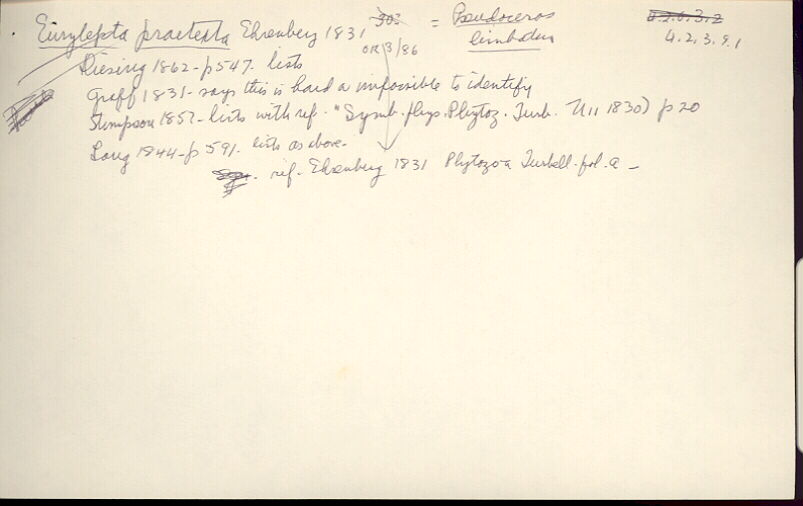 Eurylepta praetexta Ehrenberg 1831 30? = Pseudoceros limbatus
4.2.6.3.2
4.2.3.9.1
OR 3/86
Diesing 1862 - p 547 - lists
Graff 1831 - says this is hard or impossible to identify
Stimpson 1857 - lists with ref. "Symb. phys. Phytoz. Turb. 1830) p 20
Lang 1844 - p 591 - lists as above -
ref - Ehrenberg 1831 Phytozoa Turbell. fol. a -